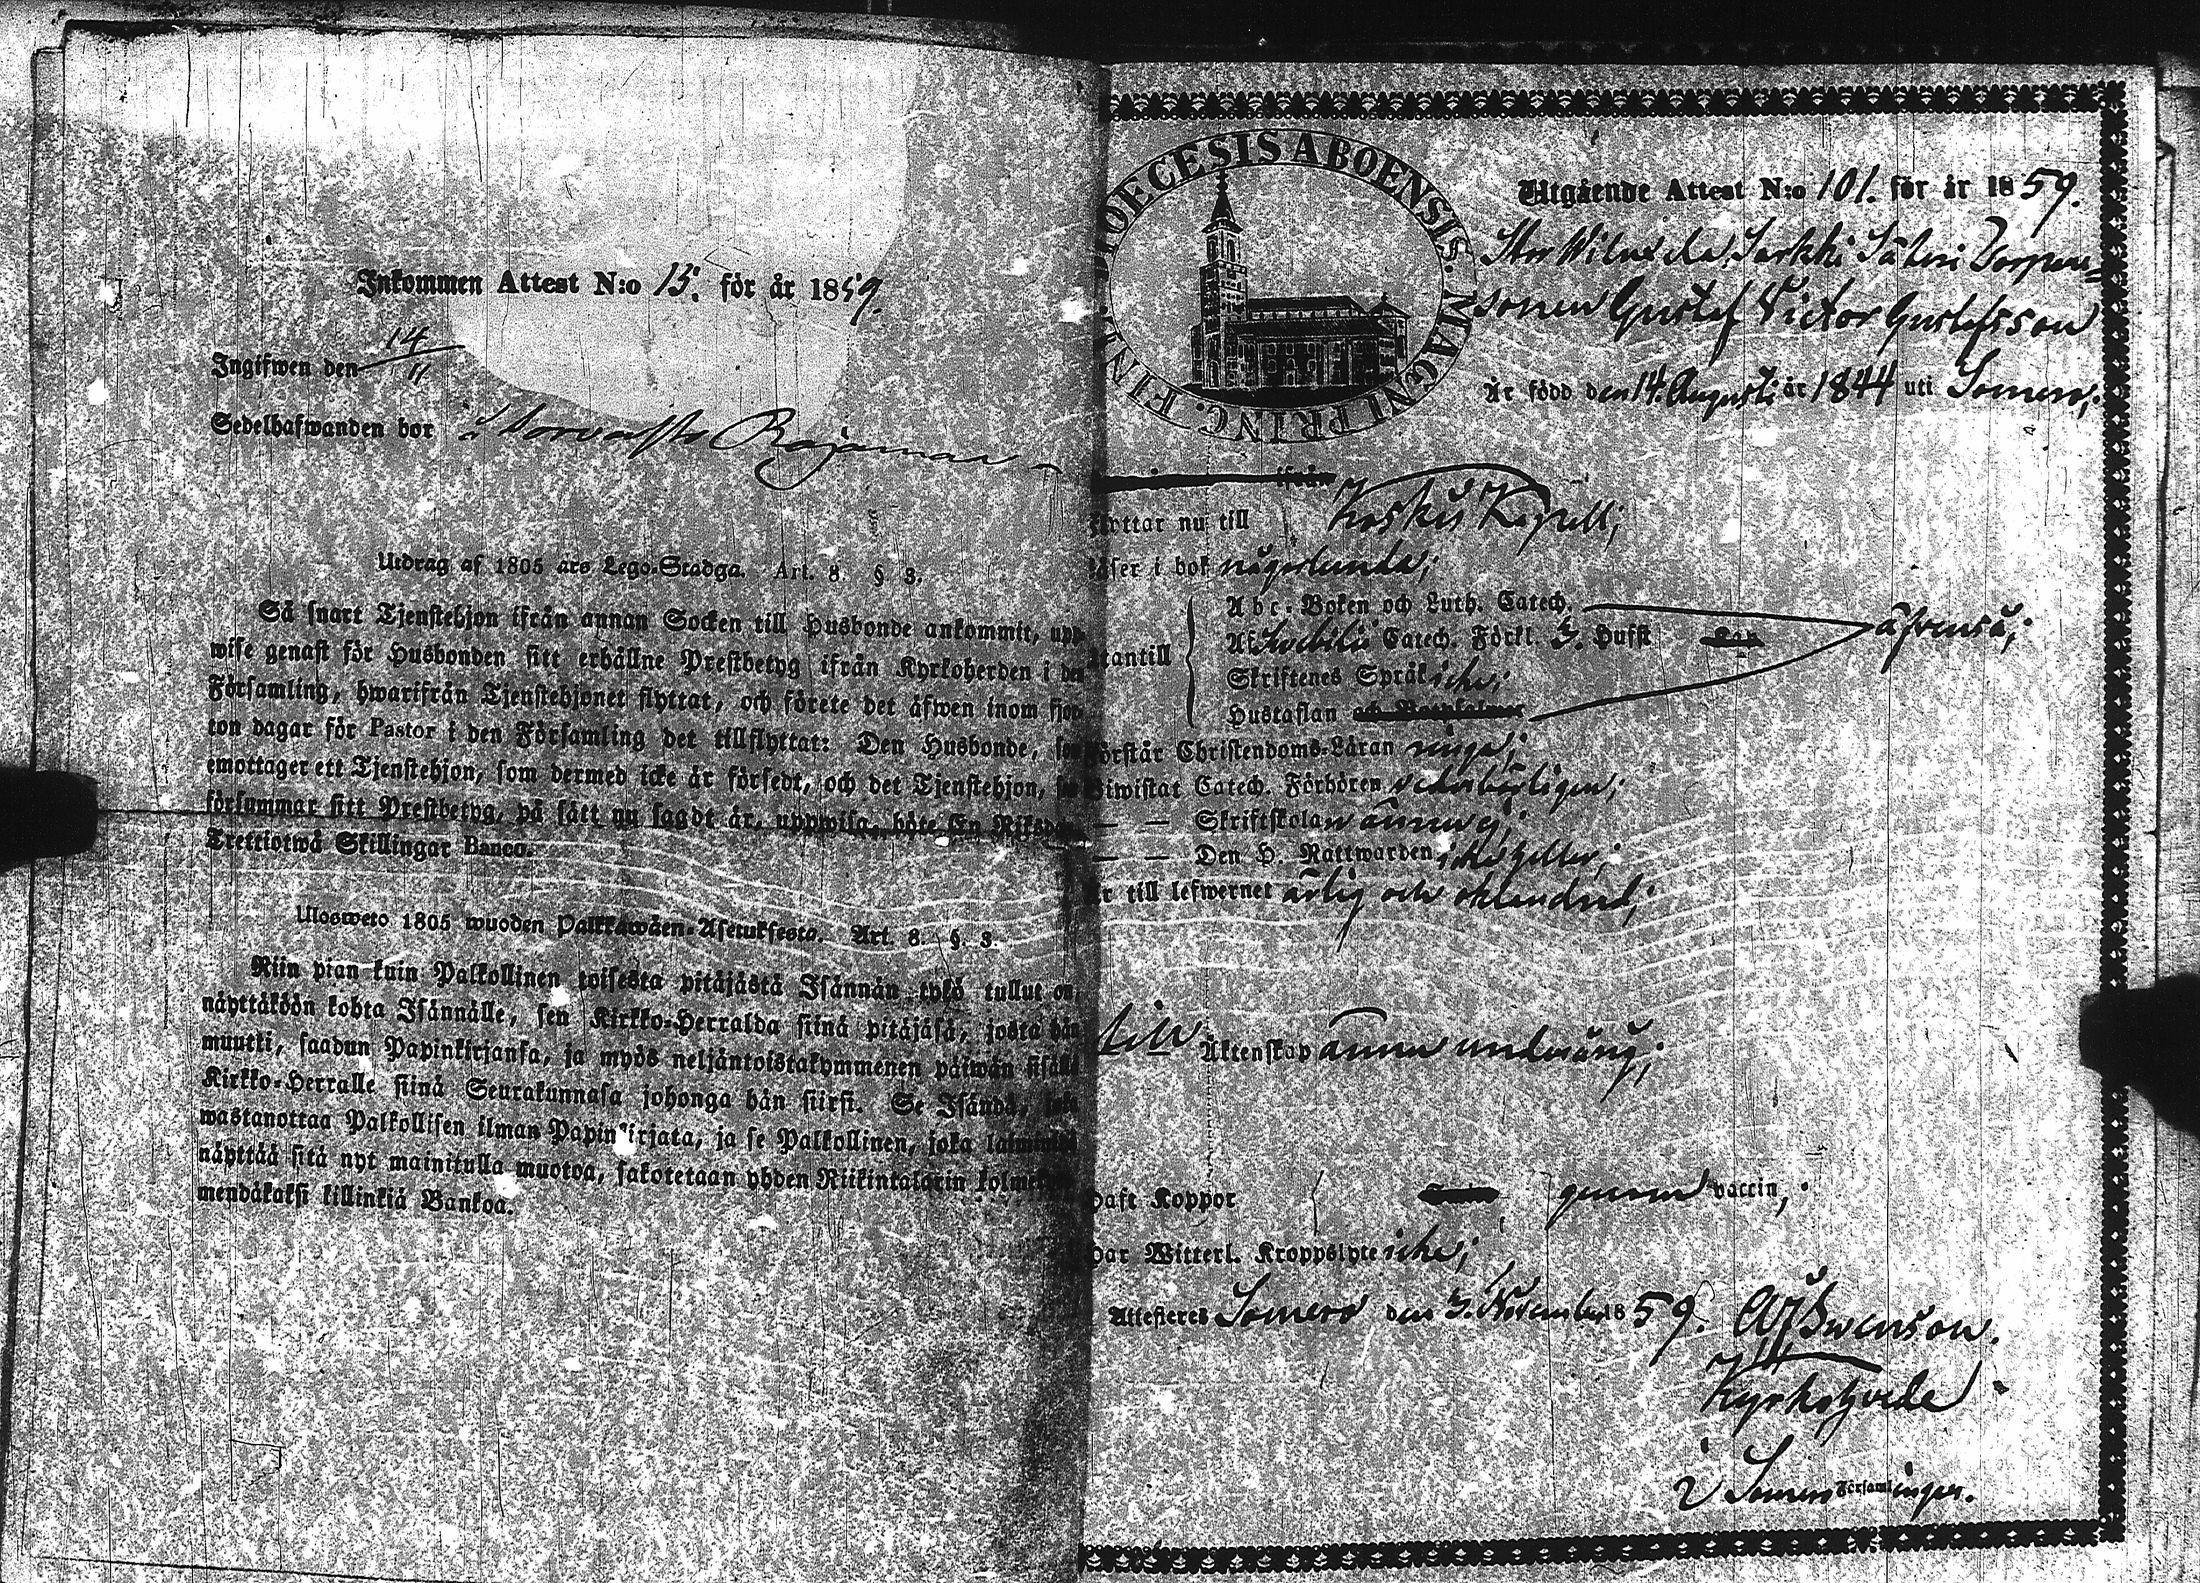 Inkommen Attest N:o 15. för år 1859.
Ingifwen den 14/11
Sedelhafwanden bor i Rajamaa
Utdrag af 1805 års Lego-Stadga. Art. 8. § 3.
Så snart Tjenstehjon ifrån annan Socken till Husbonde ankommit, upp-
wise genast för Husbonden sitt erhållne Prestbetyg ifrån Kyrkoherden i den
Församling, hwarifrån Tjenstehjonet flyttat, och förete det äfwen inom fjor-
ton dagar för Pastor i den Församling det tillflyttat: Den Husbonde, som
emottager ett Tjenstehjon, som dermed icke är försedt, och det Tjenstehjon, som
försummar sitt Prestbetyg, på sätt nu sagdt är, uppwisa, böte En Riksdal.
Trettiotwå Skillingar Banco.
Ulosweto 1805 wuoden Palkkawäen-Asetuksesta. Art. 8. §. 3.
Niin pian kuin Palkollinen toisesta pitäjästä Isännän tykö tullut on,
näyttäköön kohta Isännälle, sen Kirkko-Herralda siinä pitäjäsä, josta hän
muutti, saadun Papinkirjansa, ja myös neljäntoistakymmenen päiwän sisällä
Kirkko-Herralle siinä Seurakunnasa johonga hän siirsi. Se Isändä, joka
wastanottaa Palkollisen ilman Papinkirjata, ja se Palkollinen, joka laimin
näyttää sitä nyt mainitulla muotoa, sakotetaan yhden Riikintalarin kolme
mendäkaksi killinkiä Bankoa.
DIOECESIS ABOENSIS. MAGNI PRINC. FINL.
Utgående Attest N:o 101. för år 1859.
Säteri Torpare-
sonen Gustaf Victor Gustafsson
Är född den 14. Augusti år 1844 uti Somero;
ifrån
flyttar nu till Koskis Kapell;
Läser i bok någorlunda;
Abc-Boken och Luth. Catech.
Af Svebilii Catech. Förkl. 3. Hufst äfvenså;
utantill
Skriftenes Språk icke;
Hustaflan
Förstår Christendoms-Läran ringa;
Biwistat Catech. Förhören vederbörligen;
— — Skriftskolan ännu ej;
— — Den H. Nattwarden icke heller;
Är till lefwernet ärlig och oklandrad;
till Äktenskap ännu underårig;
Haft Koppor genom vaccin;
Har Witterl. Kroppslyte icke;
Attesteres Somero den 3. November 1859. Swenson.
Kyrkoherde
i Somero Församlingar.